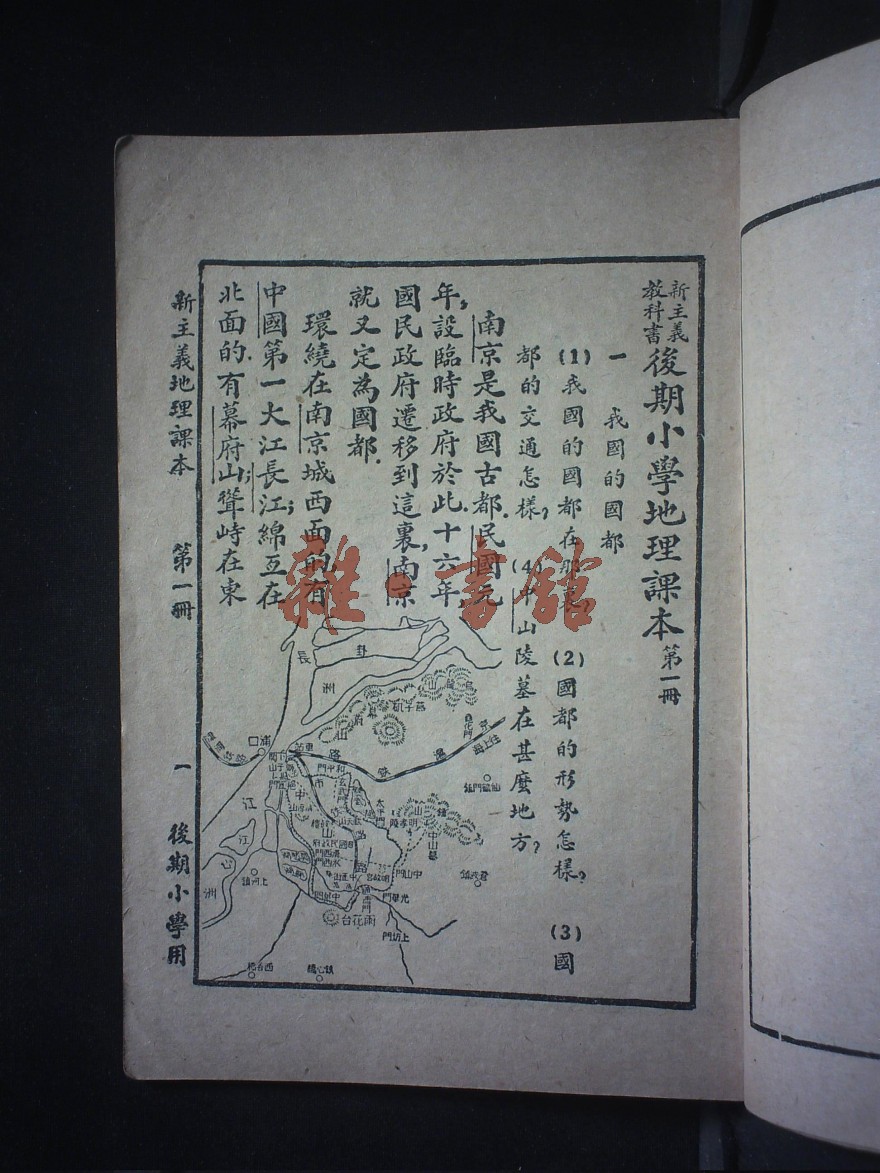 新主義教科書 後期小學地理課本 第一冊
一 我國的國都
(1)我國的國都在那裏？ (2)國都的形勢怎樣？ (3)國
都的交通怎樣？ (4)中山陵墓在甚麼地方？
南京是我國古都．民國元
年，設臨時政府於此．十六年，
國民政府遷移到這裏，南京
就又定為國都．
環繞在南京城西面的，有
中國第一大江長江；綿亙在
北面的，有幕府山；聳峙在東
新主義地理課本 第一冊 一 後期小學用
雜·書館
長
卦
洲
燕子磯
浦口
車站
路
和平門
玄武門
太平門
仙鶴門鎮
中山墓
中山門
光華門
上坊門
雨花台
江
江心洲
上河鎮
鎮心橋